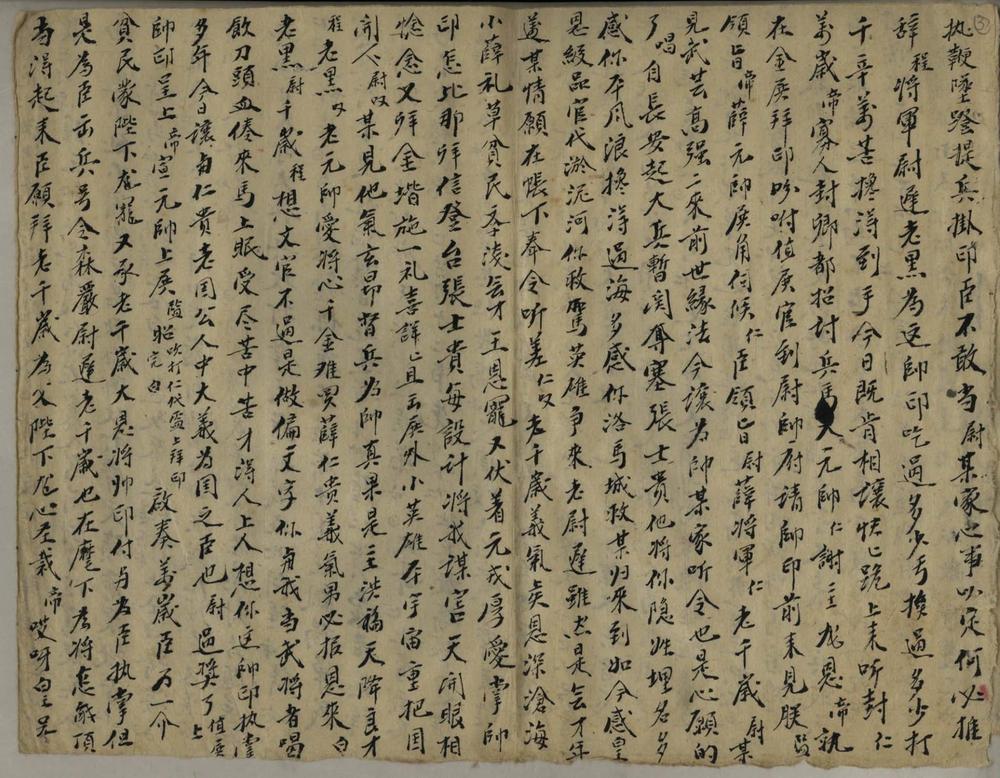 ③
执鞭墜蹬提兵掛印臣不敢当尉某家心事以定何必推
辞程将軍尉遲老黑為这帥印吃过多少亏换过多少打
千辛萬苦攙淂到手今日既肯相讓快上跪上来听封仁
萬歲帝寡人封卿都招討兵馬大元帥仁謝主龙恩帝就
在金庚拜印吩咐值庚官剑尉帥尉請帥印前来見朕
領旨帝薛元帥庚角伺候仁臣領旨尉薛將軍仁老千歲尉某
見武芸高强二来前世緣法今讓為帥某家听令也是心願的
了唱自長安起大兵暫関奪寨張士貴他将你隐姓埋名多
感你平风浪攙淂過海多感你洛馬城救某归来到如今感皇
恩级品官代淤泥河你救駕英雄争来老尉遲雖然是会才年
邁某情願在帳下奉令听差仁叹老千歲義氣矣恩深滄海
小薛礼草貧民圣淺会才王恩寵又伏着元戎厚愛掌帥
印怎比那拜信登台張士貴每設計将我謀害天開眼相
怜念又拜金堦施一礼喜詳上且云庚外小英雄本宇宙重把国
開人尉叹某見他氣玄昂督兵為帥真果是主洪福天降良才
程老黑叹老元帥愛将心千金难買薛仁贵義氣男必报恩来白
老黑尉千歲程想文官不過是做偏文字你与我当武将者喝
飲刀頭血倦来馬上眠受尽苦中苦才淂人上人想你这帥印执掌
多年今日讓与仁贵老国公人中大義為国之臣也尉過獎了值庚上
帥印呈上帝宣元帥上庚随昭吹打仁代盔上拜印完白啟奏萬歲臣乃一个
貧民蒙陛下龙寵又承老千歲大恩将帅印付与为臣执掌但
是為臣岳兵号令森嚴尉遲老千歲也在麾下为将怎能頂
当淂起来臣願拜老千歲為父陛下龙心圣裁帝哎呀白皇兄